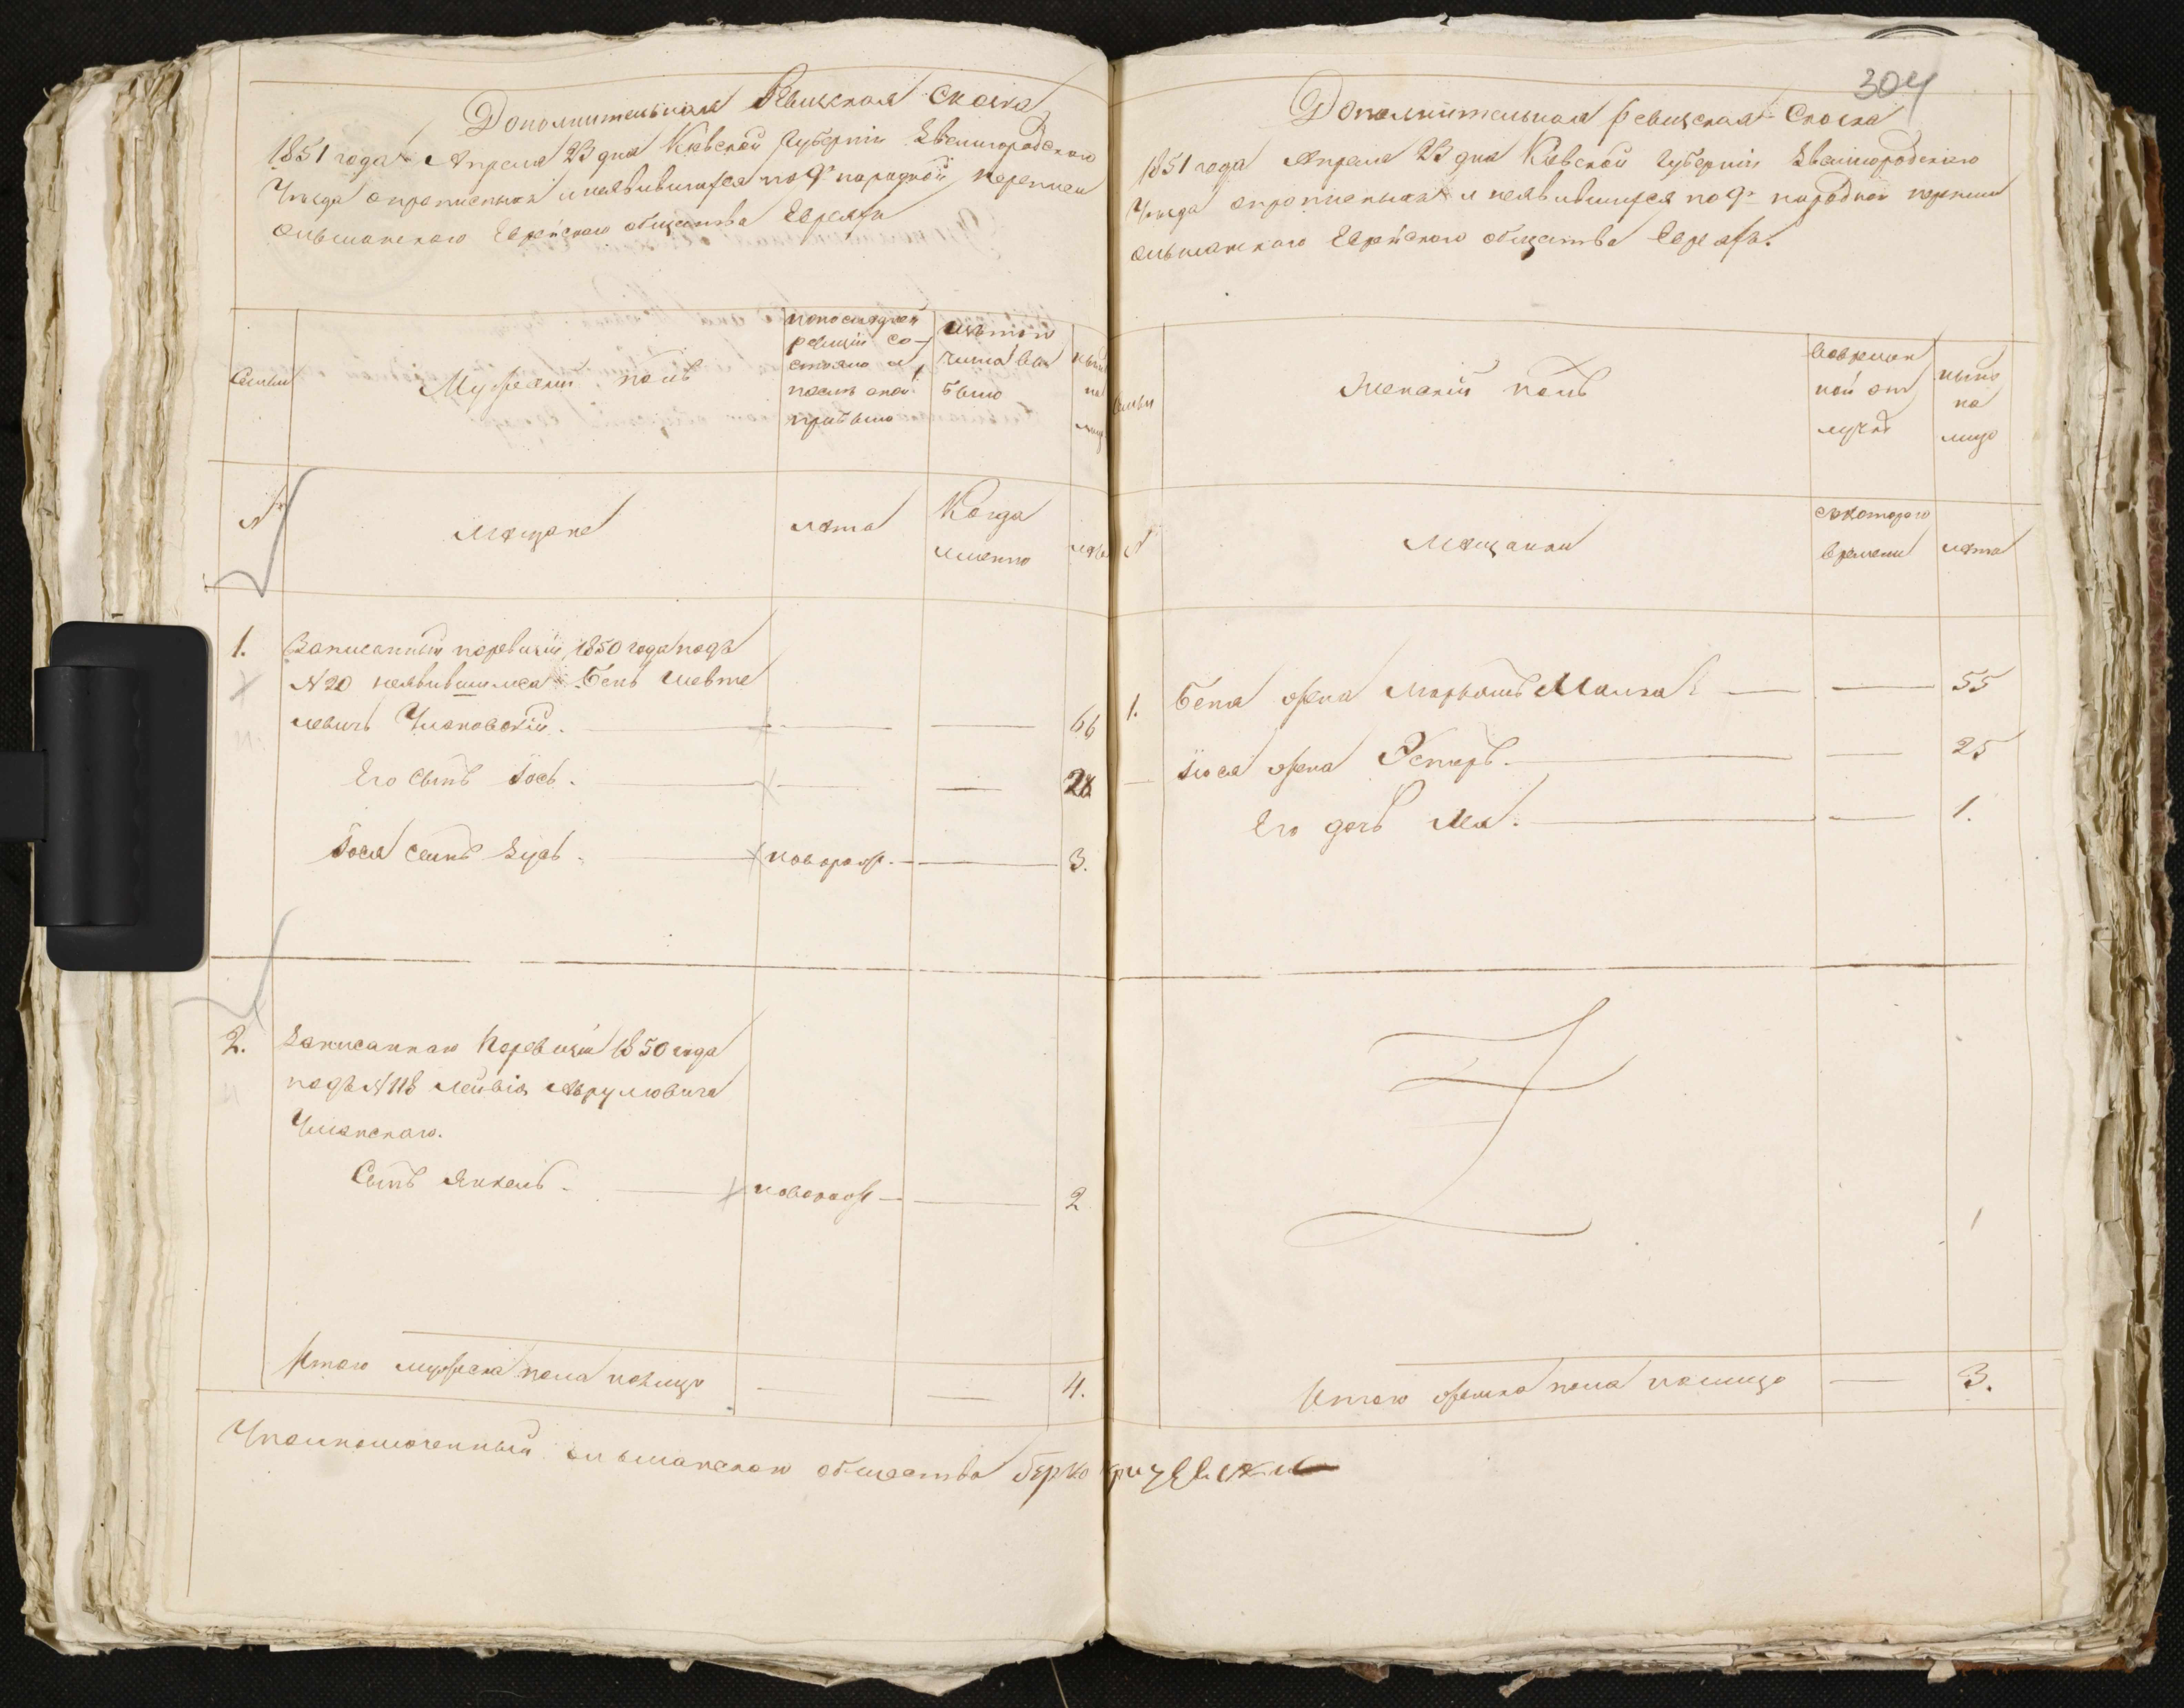 Дополнительная Ревизская Сказка
1851 года Апреля 23 дня Киевской Губернiи Звенигородскаго
Уѣзда о прописныхъ и неявившихся по 9й народной переписи
ольшанскаго Еврейскаго общества Евреяхъ
Семьи
Мужескiй полъ
по последней ревизiи состояло и после оной прибыло
изъ того числа выбыло
ныне на лицо
№
Мещане
лета
Когда именно
лета
1. Записанный поревизiи 1850 года подъ
№ 20 неявившимся Бень Шевте
левичъ Умановскiй. 66
Его Сынъ Iось. 28
Iося сынъ Зусь новорож. 3.
2. Записаннаго поревизiи 1850 года
подъ № 118 Лейбiя Сруловича
Уманскаго.
Сынъ Янкель новорож 2
Итого мужеска пола налицо 4.
Уполномоченный ольшанскаго общества Берко
304
Дополнительная ревизская Сказка
1851 года Апреля 23 дня Киевской Губернiи Звенигородскаго
Уѣзда о прописныхъ и неявившихся по 9й народной переписи
ольшанскаго Еврейскаго общества Евреяхъ.
Семьи
Женскiй полъ
Вовременной отлучке
ныне на лицо
№
Мещанки
съ котораго времени
лета
1. Беня жена Малка 55
Iося жена Эстеръ. 25
Его дочь 1.
Итого женска пола налицо 3.